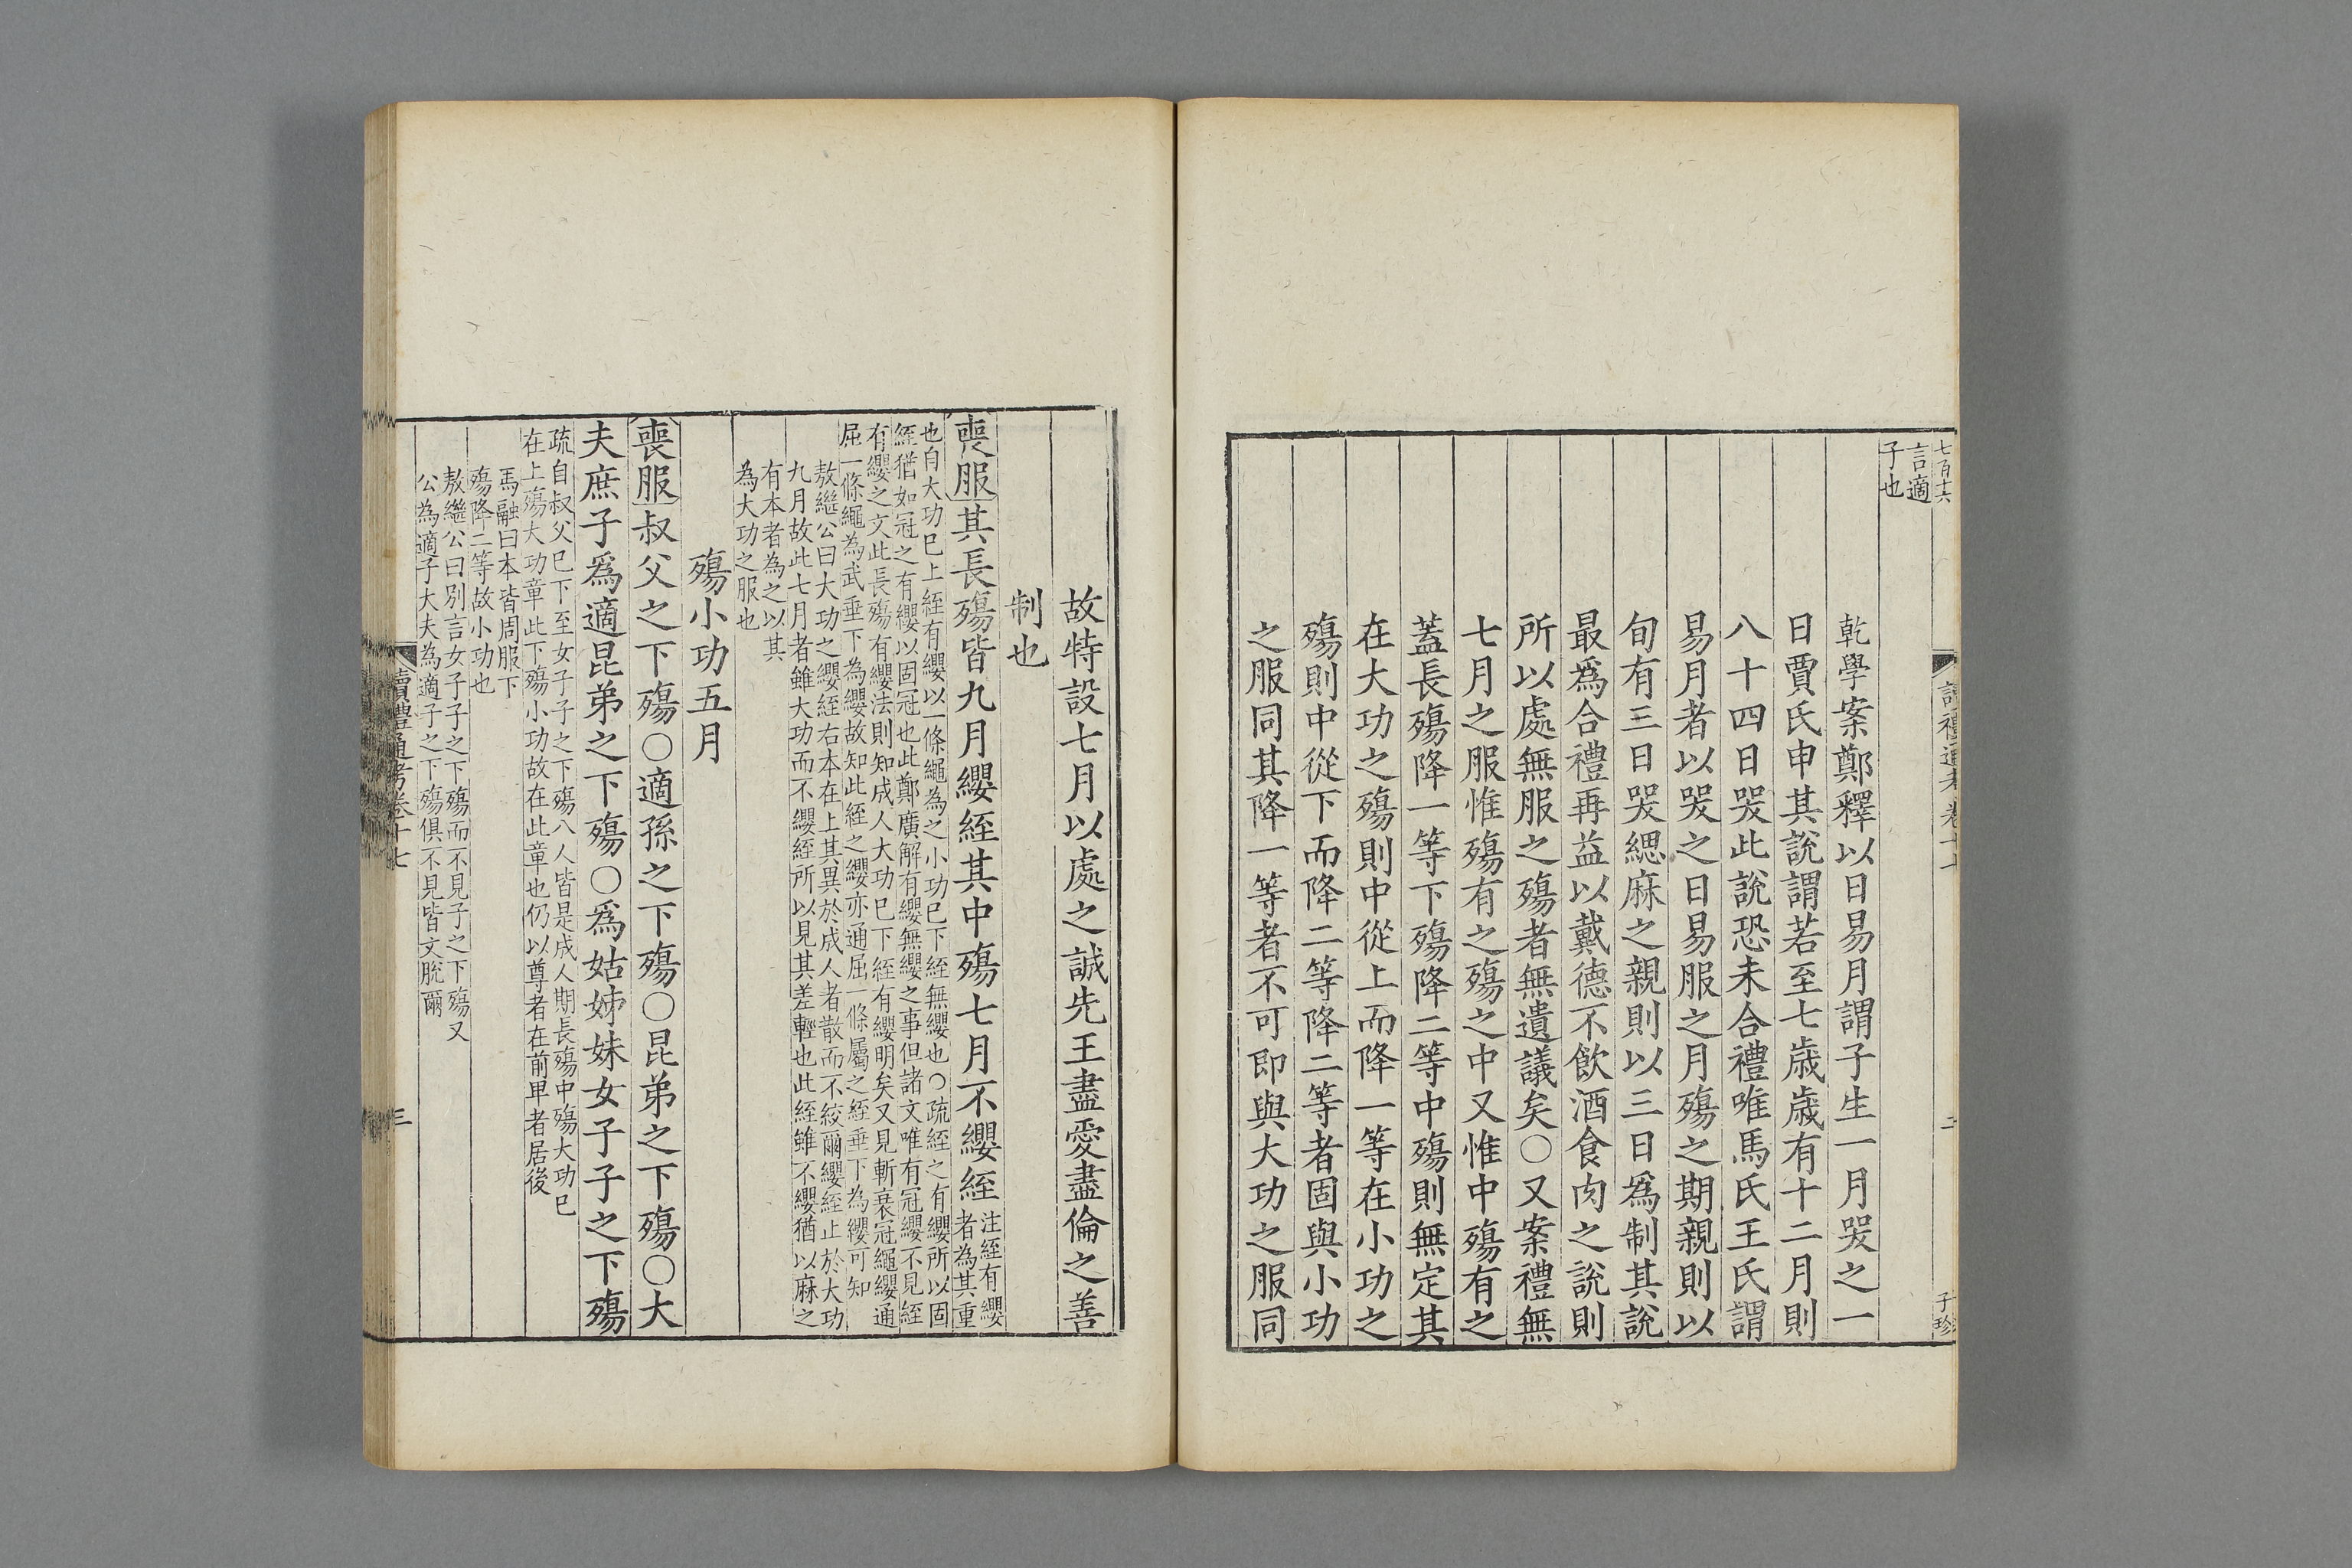 七百十六
讀禮通考卷十七
二
子珍
言適
子也
乾學案鄭釋以日易月謂子生一月哭之一
日賈氏申其說謂若至七歲歲有十二月則
八十四日哭此說恐未合禮唯馬氏王氏謂
易月者以哭之日易服之月殤之期親則以
旬有三日哭緦麻之親則以三日爲制其說
最爲合禮再益以戴德不飲酒食肉之說則
所以處無服之殤者無遺議矣○又案禮無
七月之服惟殤有之殤之中又惟中殤有之
蓋長殤降一等下殤降二等中殤則無定其
在大功之殤則中從上而降一等在小功之
殤則中從下而降二等降二等者固與小功
之服同其降一等者不可即與大功之服同
故特設七月以處之誠先王盡愛盡倫之善
制也
喪服其長殤皆九月纓絰其中殤七月不纓絰
注絰有纓
者為其重
也自大功巳上絰有纓以一條繩為之小功巳下絰無纓也○疏絰之有纓所以固
絰猶如冠之有纓以固冠也此鄭廣解有纓無纓之事但諸文唯有冠纓不見絰
有纓之文此長殤有纓法則知成人大功巳下絰有纓明矣又見斬衰冠繩纓通
屈一條繩為武垂下為纓故知此絰之纓亦通屈一條屬之絰垂下為纓可知
敖繼公曰大功之纓絰右本在上其異於成人者散而不絞爾纓絰止於大功
九月故此七月者雖大功而不纓絰所以見其差輕也此絰雖不纓猶以麻之
有本者為之以其
為大功之服也
殤小功五月
喪服叔父之下殤○適孫之下殤○昆弟之下殤○大
夫庶子爲適昆弟之下殤○爲姑姊妹女子子之下殤
疏自叔父巳下至女子子之下殤八人皆是成人期長殤中殤大功巳
在上殤大功章此下殤小功故在此章也仍以尊者在前卑者居後
馬融曰本皆周服下
殤降二等故小功也
敖繼公曰別言女子子之下殤而不見子之下殤又
公為適子大夫為適子之下殤俱不見皆文脫爾
讀禮通考卷十七
三